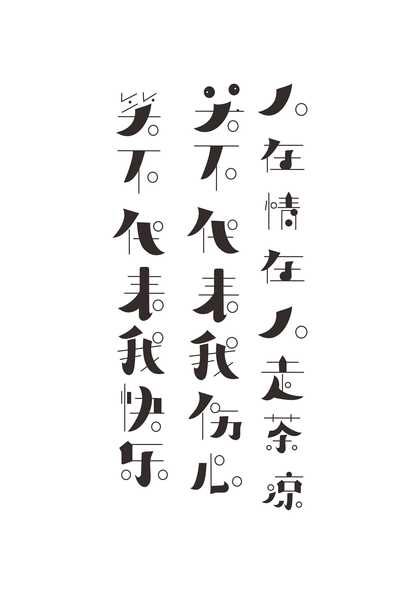 人在情在人走茶凉
哭不代表我伤心
笑不代表我快乐